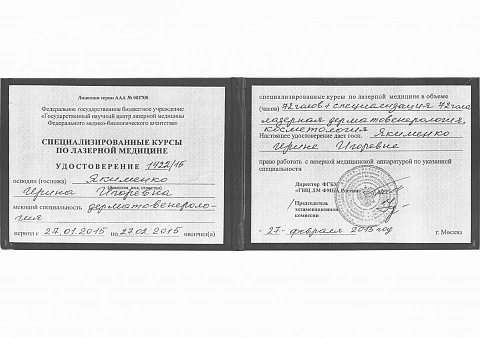 Лицензия серия ААА № 002708
Федеральное государственное бюджетное учреждение
«Государственный научный центр лазерной медицины
Федерального медико-биологического агентства»
СПЕЦИАЛИЗИРОВАННЫЕ КУРСЫ
ПО ЛАЗЕРНОЙ МЕДИЦИНЕ
УДОСТОВЕРЕНИЕ 1422/15
господин (госпожа) Якименко
Ирина Игоревна
(фамилия, имя, отчество)
имеющий специальность дерматовенероло-
гия
период с 27.01.2015 по 27.02.2015 окончил(а)
специализированные курсы по лазерной медицине в объеме
(часов) 72 часов + специализация 72 часа
лазерная дерматовенерология,
косметология
Настоящее удостоверение дает госп. Якименко
Ирине Игоревне
право работать с лазерной медицинской аппаратурой по указанной
специальности
Директор ФГБУ
«ГНЦ ЛМ ФМБА России»
Председатель
экзаменационной
комиссии
«27» февраля 2015 год
г. Москва